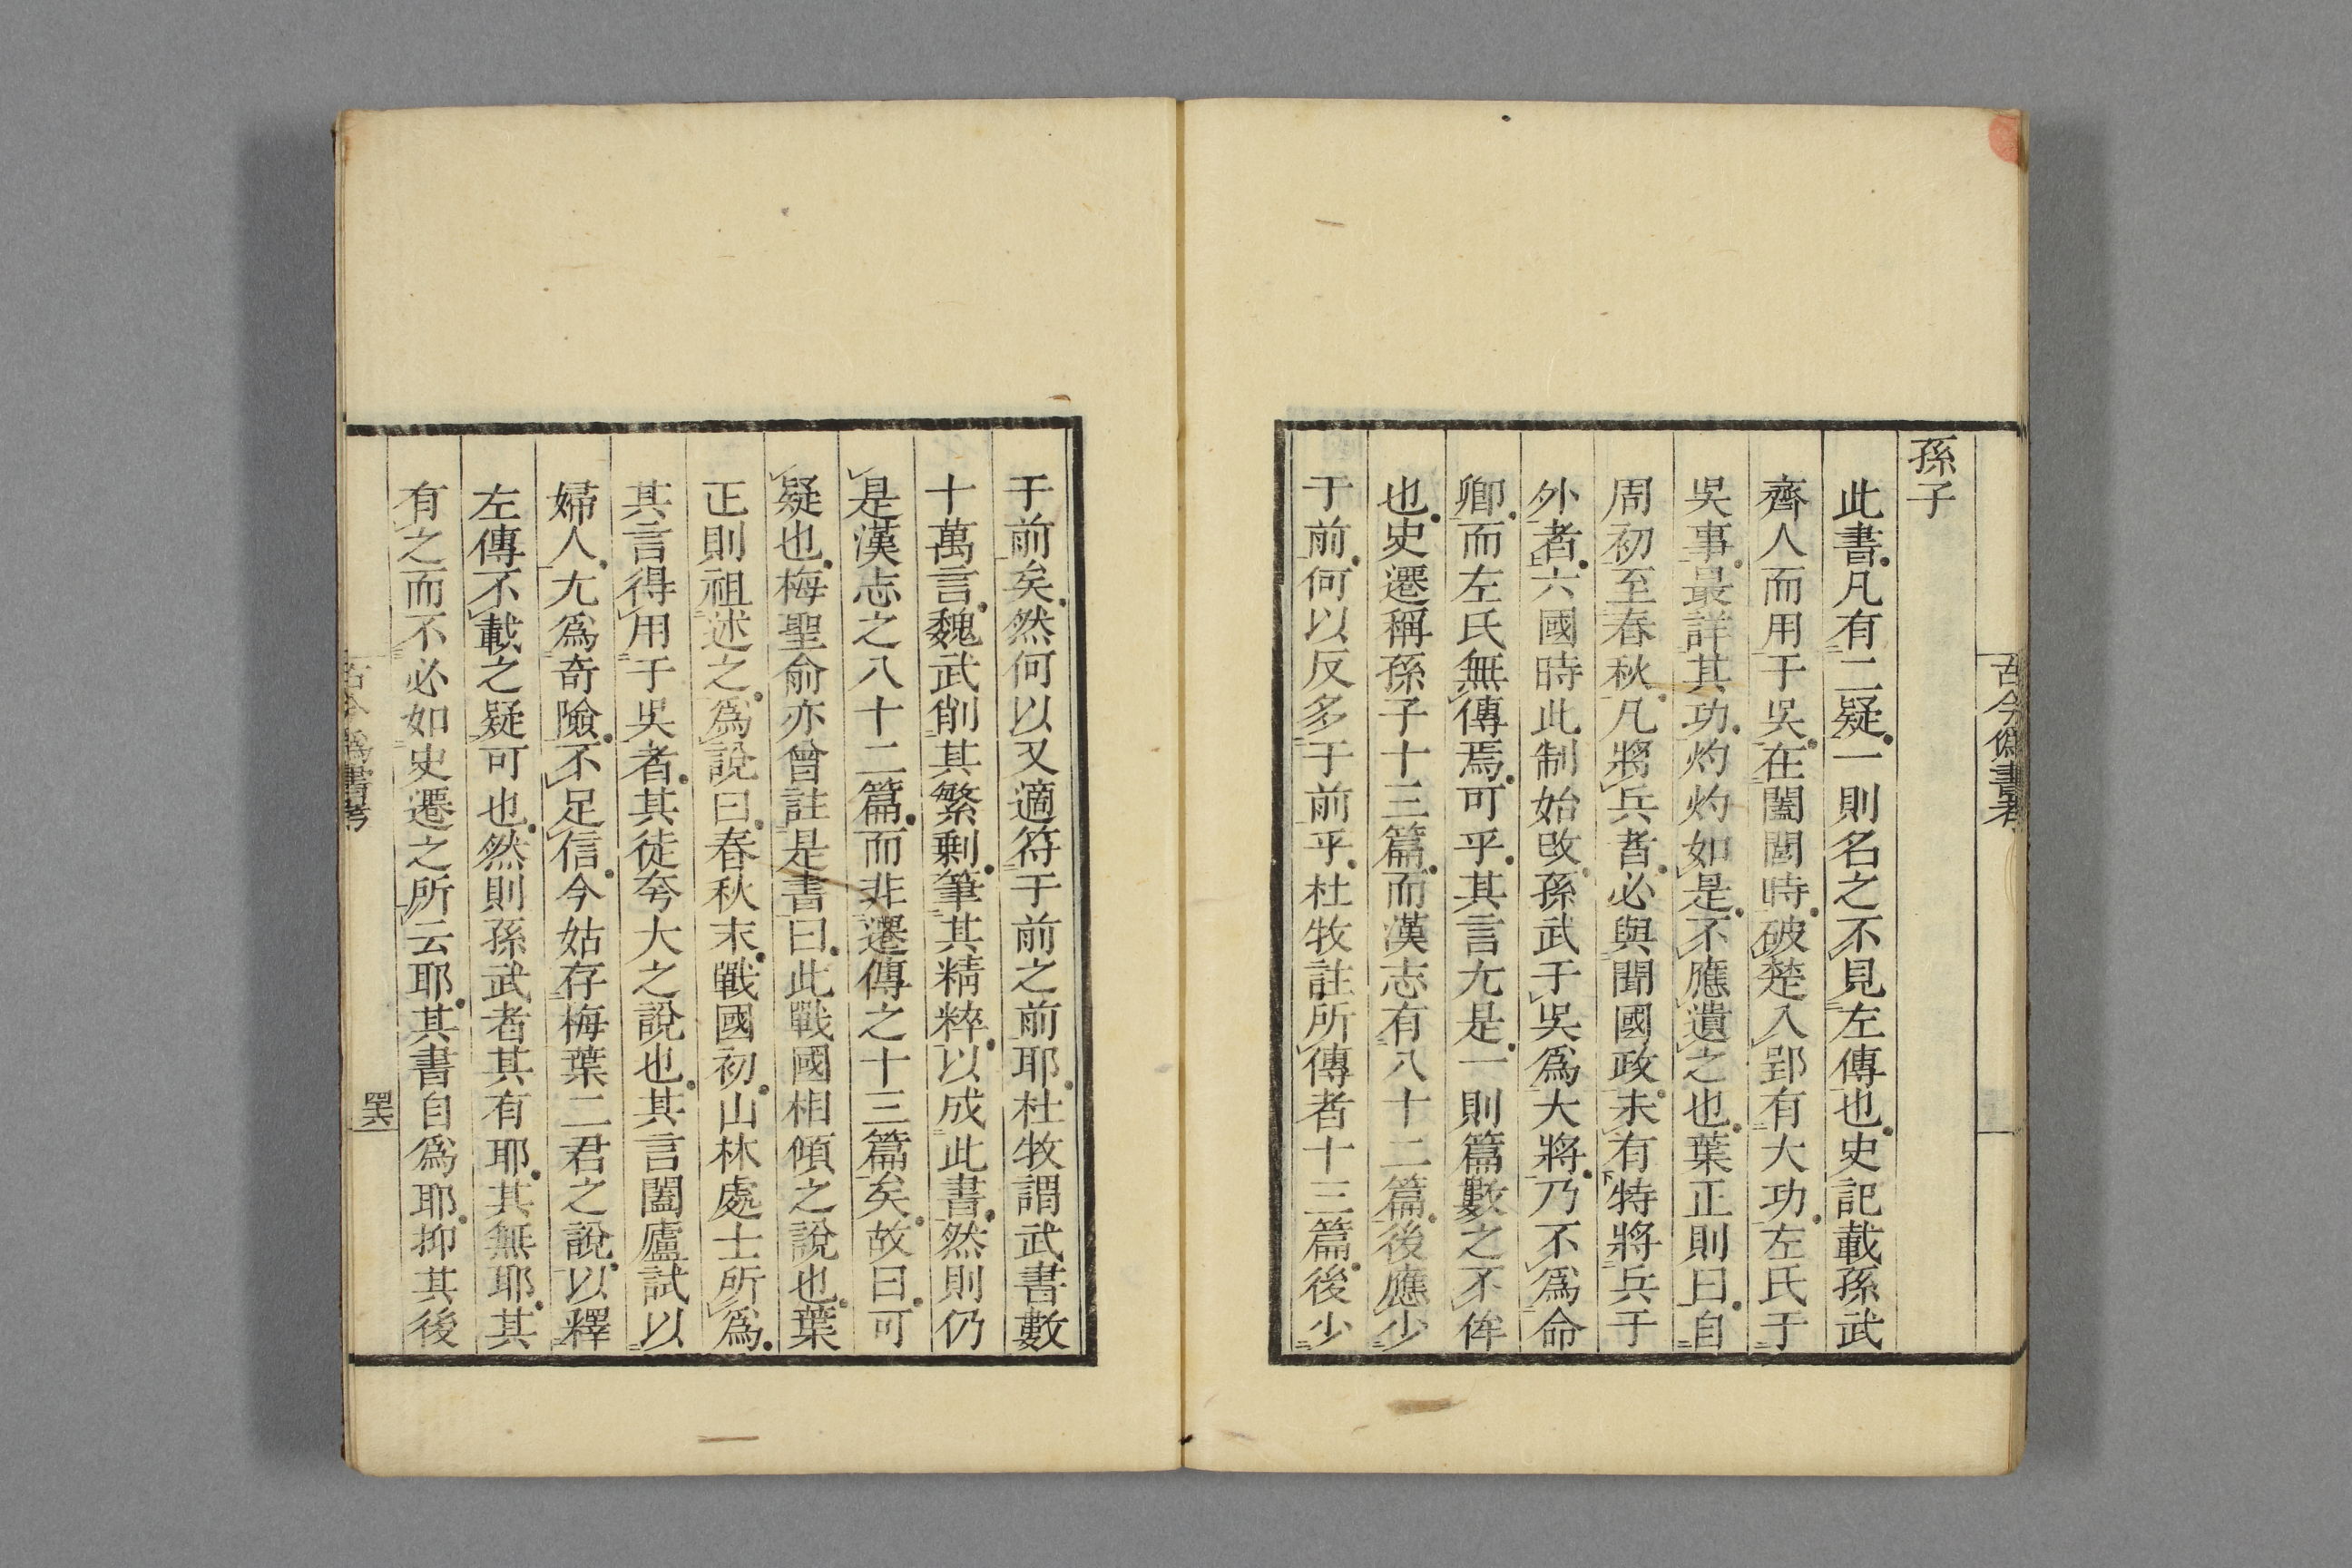 古今僞書考
孫子
此書凡有二疑一則名之不見左傳也史記載孫武
齊人而用于吳在闔閭時破楚入郢有大功左氏于
吳事最詳其功灼灼如是不應遺之也葉正則曰自
周初至春秋凡將兵者必與聞國政未有特將兵于
外者六國時此制始改孫武于吳爲大將乃不爲命
卿而左氏無傳焉可乎其言尤是一則篇數之不侔
也史遷稱孫子十三篇而漢志有八十二篇後應少
于前何以反多于前乎杜牧註所傳者十三篇後少
于前矣然何以又適符于前之前耶杜牧謂武書數
十萬言魏武削其繁剩筆其精粹以成此書然則仍
是漢志之八十二篇而非遷傳之十三篇矣故曰可
疑也梅聖俞亦曾註是書曰此戰國相傾之說也葉
正則祖述之爲說曰春秋末戰國初山林處士所爲
其言得用于吳者其徒夸大之說也其言闔廬試以
婦人尤爲奇險不足信今姑存梅葉二君之說以釋
左傳不載之疑可也然則孫武者其有耶其無耶其
有之而不必如史遷之所云耶其書自爲耶抑其後
古今僞書考
四六